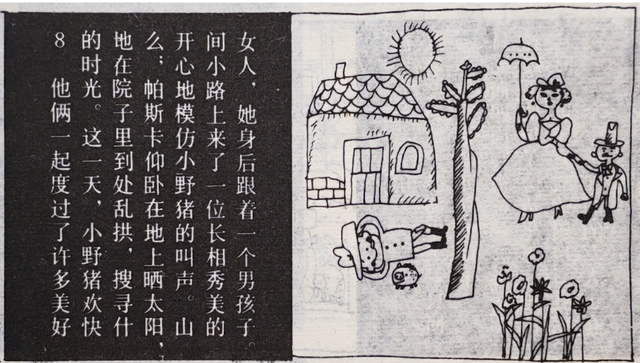 8 他俩一起度过了许多美好
的时光。这一天，小野猪欢快
地在院子里到处乱拱，搜寻什
么；帕斯卡仰卧在地上晒太阳，
开心地模仿小野猪的叫声。山
间小路上来了一位长相秀美的
女人，她身后跟着一个男孩子。